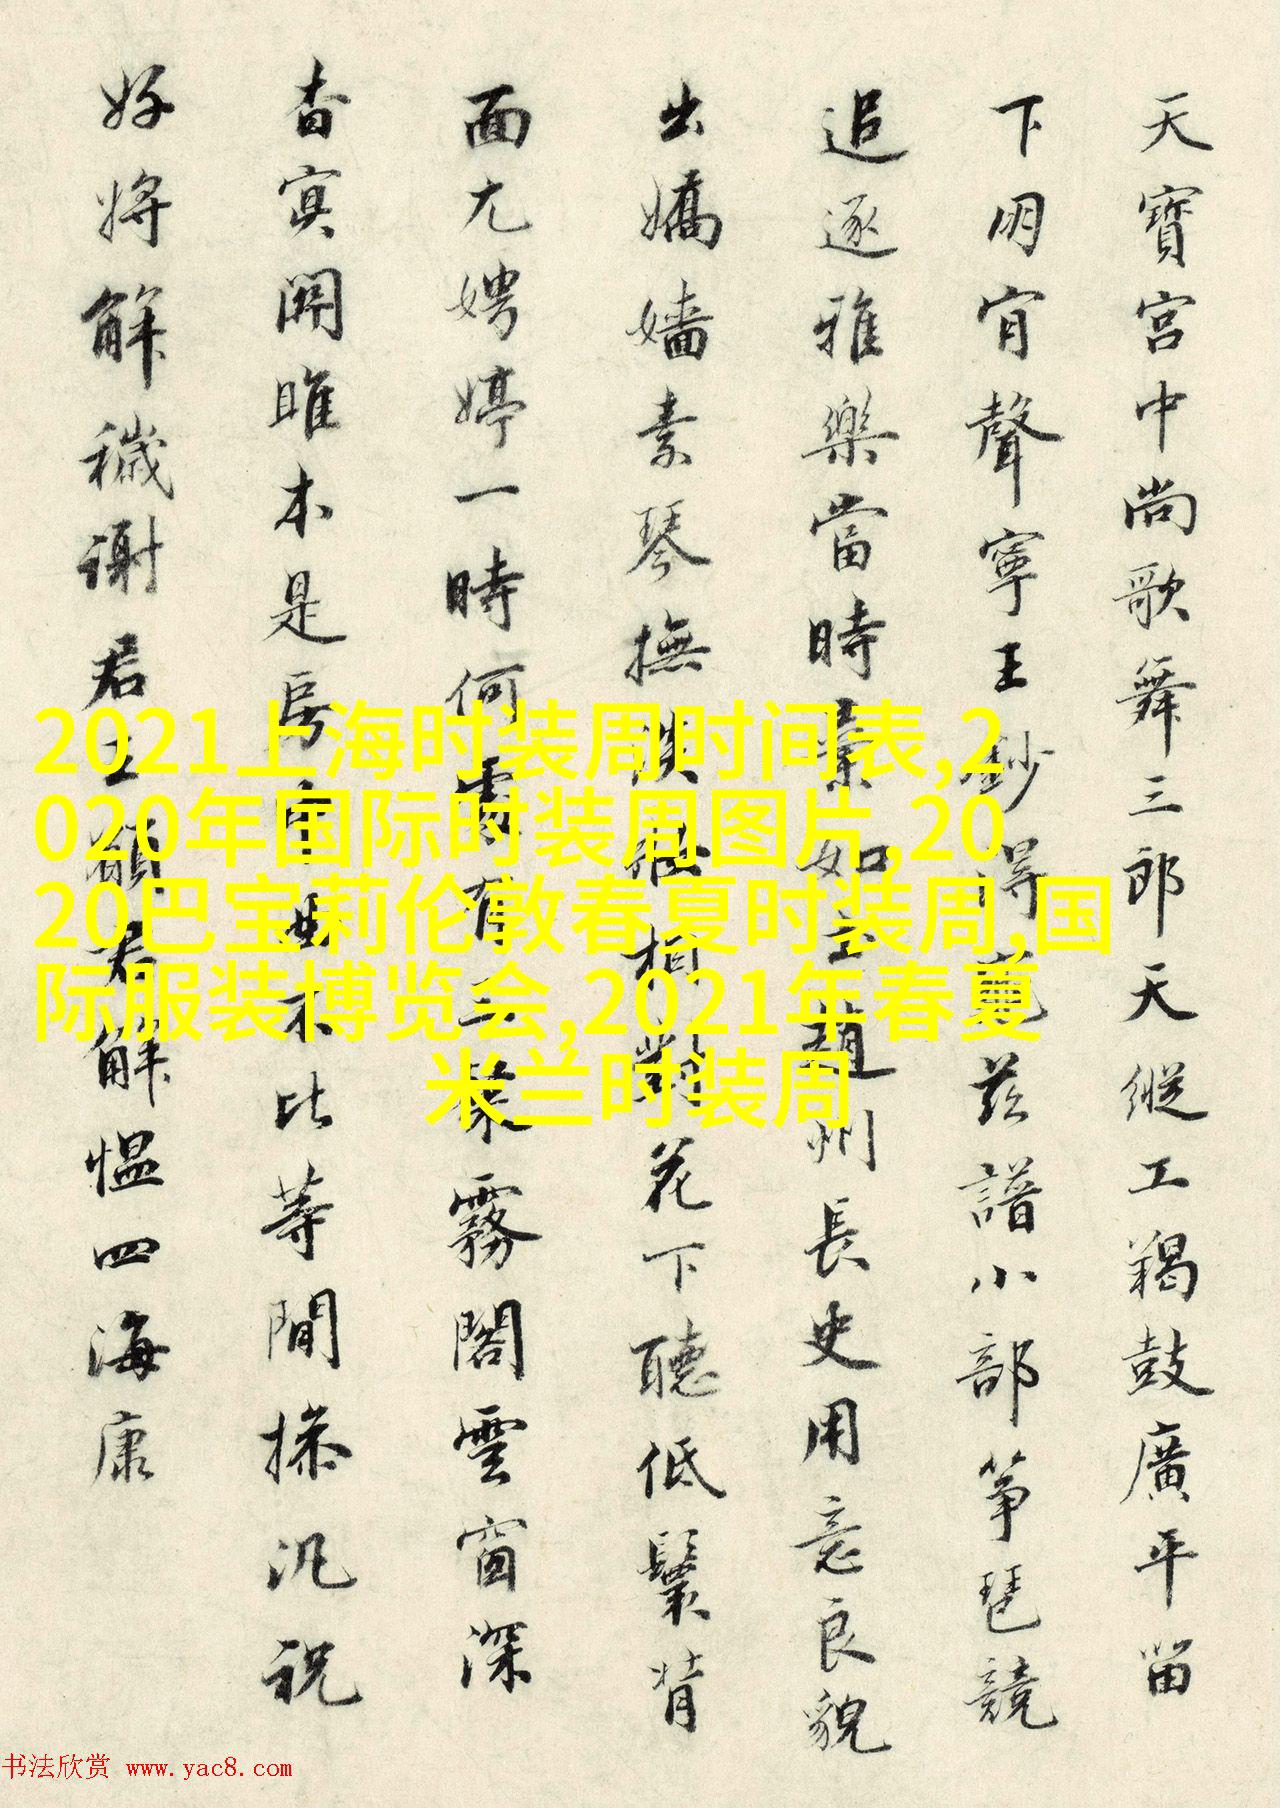 天寶宮中尚歌舞三郎天縱工羯鼓廣平留
下明肎聲寧王鈔得茲譜小部箏琶競
追逐雅樂當時棄如土趙州長史用意良貌
出嬌嬙素琴撫相對花下聽低鬟背
面尤娉婷一時何處有三葉霧閣雲窗深
杳冥關雎本是房中不比等閒操汎祝
好將解穢謝君王願君解慍四海康
2021上海时装周时间表,2
020年国际时装周图片,20
20巴宝莉伦敦春夏时装周,国
际服装博览会,2021年春夏
米兰时装周
书法欣赏 www.yac8.com